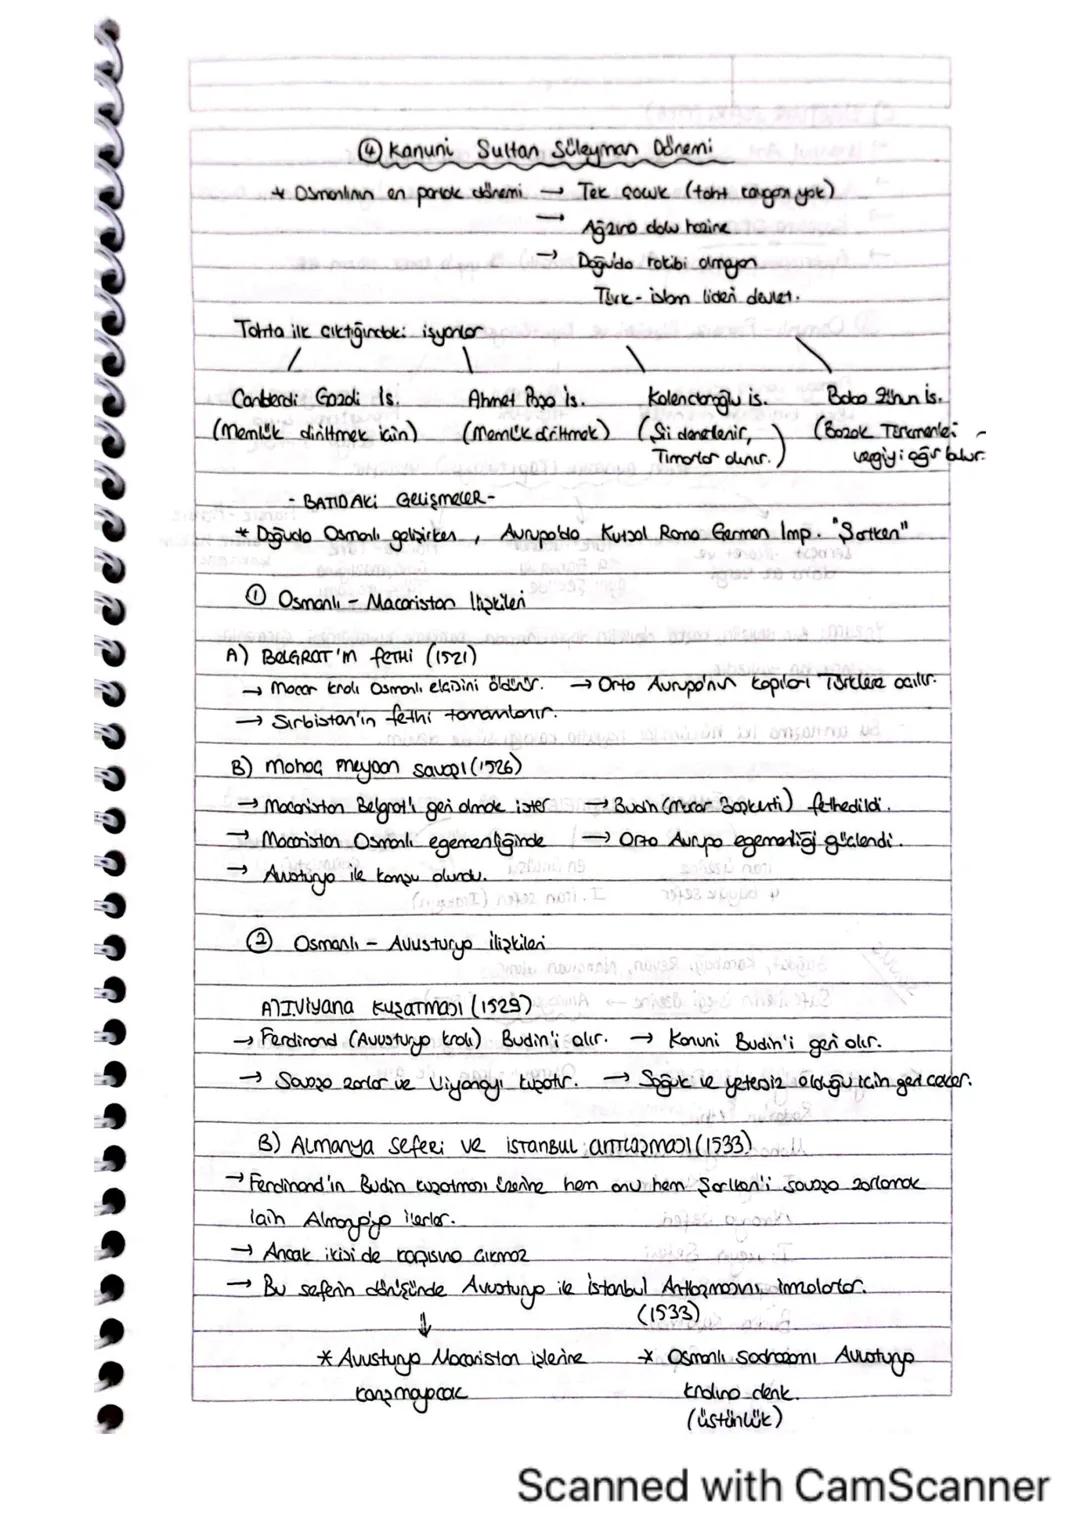 ④ Kanuni Sultan Süleyman Dönemi
* Osmanlının en parlak dönemi → Tek çocuk (taht kavgası yok)
→ Ağzına dolu hazine
→ Doğu'da rakibi olmayan
Türk-islam lideri devlet.
Tahta ilk çıktığındaki isyanlar
Canberdi Gazali İs. Ahmet Paşa İs. Kalenderoğlu is. Baba Zünun İs.
(Memlük diriltmek için) (Memlük diriltmek) (Şii denetlenir, (Bozok Türkmenleri
Tımarlar alınır.) vergiyi ağır bulur.
- BATIDAKi GELişMELER -
* Doğuda Osmanlı gelişirken, Avrupa'da Kutsal Roma Germen İmp. "Şarlken"
① Osmanlı - Macaristan İlişkileri
A) BELGRAT'ın fETHi (1521)
→ Macar kralı Osmanlı elçisini öldürür. → Orta Avrupa'nın kapıları Türklere açılır.
→ Sırbistan'ın fethi tamamlanır.
B) Mohaç Meydan Savaşı (1526)
→ Macaristan Belgrat'ı geri almak ister → Budin (Macar Başkenti) fethedildi.
→ Macaristan Osmanlı egemenliğinde → Orta Avrupa egemenliği güçlendi.
→ Avusturya ile komşu olundu.
② Osmanlı - Avusturya ilişkileri
A) I. Viyana Kuşatması (1529)
→ Ferdinand (Avusturya kralı) Budin'i alır. → Kanuni Budin'i geri alır.
→ Savaşa zorlar ve Viyanayı kuşatır. → Soğuk ve yetersiz olduğu için geri çeker.
B) Almanya seferi ve istanbul antlaşması (1533)
→ Ferdinand'ın Budin kuşatması üzerine hem onu hem Şarlken'i savaşa zorlamak
için Almanya'ya ilerler.
→ Ancak ikisi de karşısına çıkmaz
→ Bu seferin dönüşünde Avusturya ile İstanbul Antlaşmasını imzalarlar.
(1533)
↓
* Avusturya Macaristan işlerine * Osmanlı Sadrazamı Avusturya
karışmayacak kralına denk.
(üstünlük)
Scanned with CamScanner